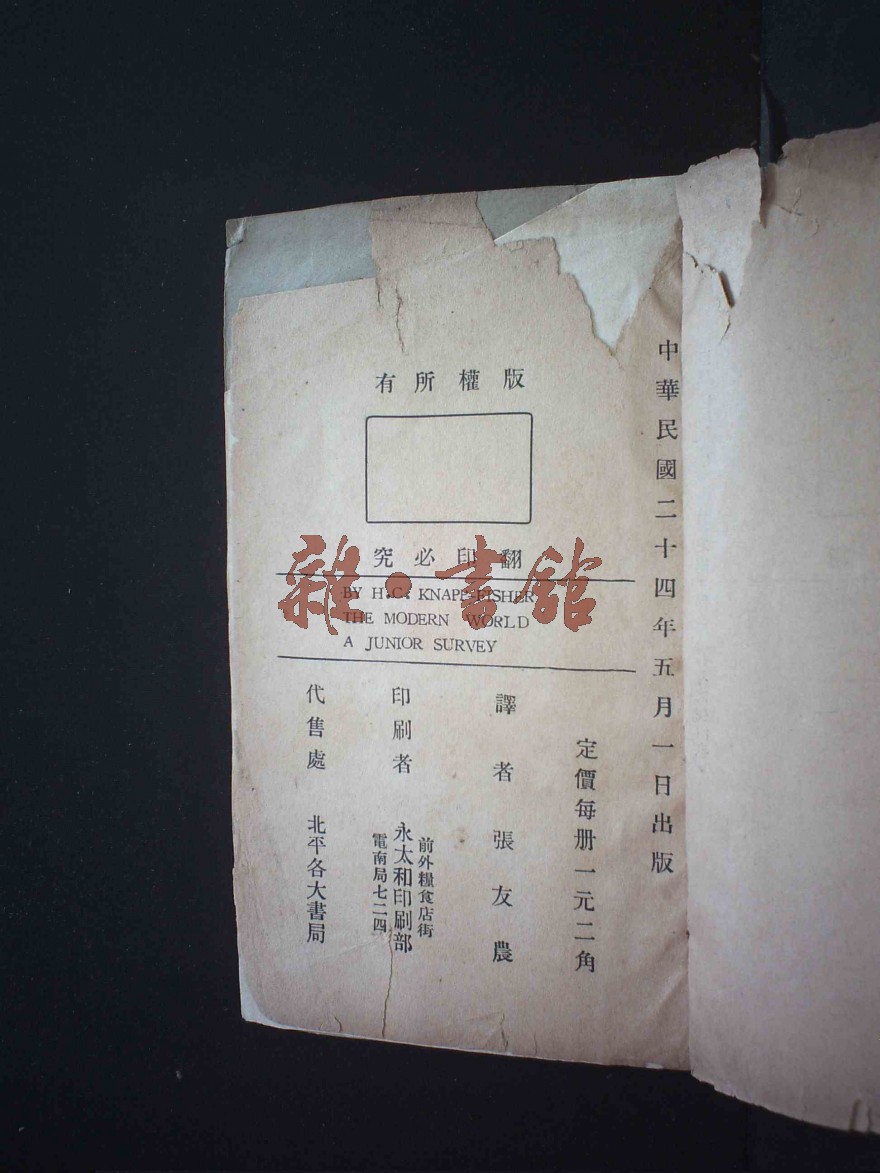 中華民國二十四年五月一日出版
版權所有
翻印必究
BY H.C. KNAPP-FISHER
THE MODERN WORLD
A JUNIOR SURVEY
定價每册一元二角
譯者張友農
印刷者
前外糧食店街
永太和印刷部
電南局七二四
代售處 北平各大書局
雜·書館